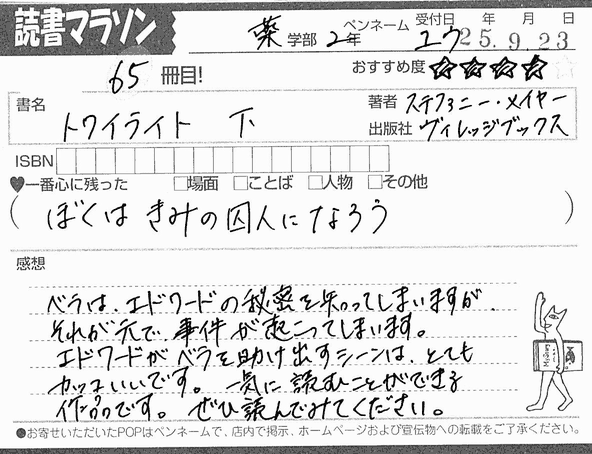 読書マラソン
薬 学部 2年
ペンネーム ユウ
受付日 年 月 日
25.9.23
65 冊目!
おすすめ度 ★★★★☆
書名
トワイライト 下
著者 ステファニー・メイヤー
出版社 ヴィレッジブックス
ISBN
♥一番心に残った □場面 □ことば □人物 □その他
( ぼくは きみの囚人になろう )
感想
ベラは、エドワードの秘密を知ってしまいますが、
それが元で、事件が起こってしまいます。
エドワードがベラを助け出すシーンは、とても
カッコいいです。一気に読むことができる
作品です。ぜひ読んでみてください。
●お寄せいただいたPOPはペンネームで、店内で掲示、ホームページおよび宣伝物への転載をご了承ください。